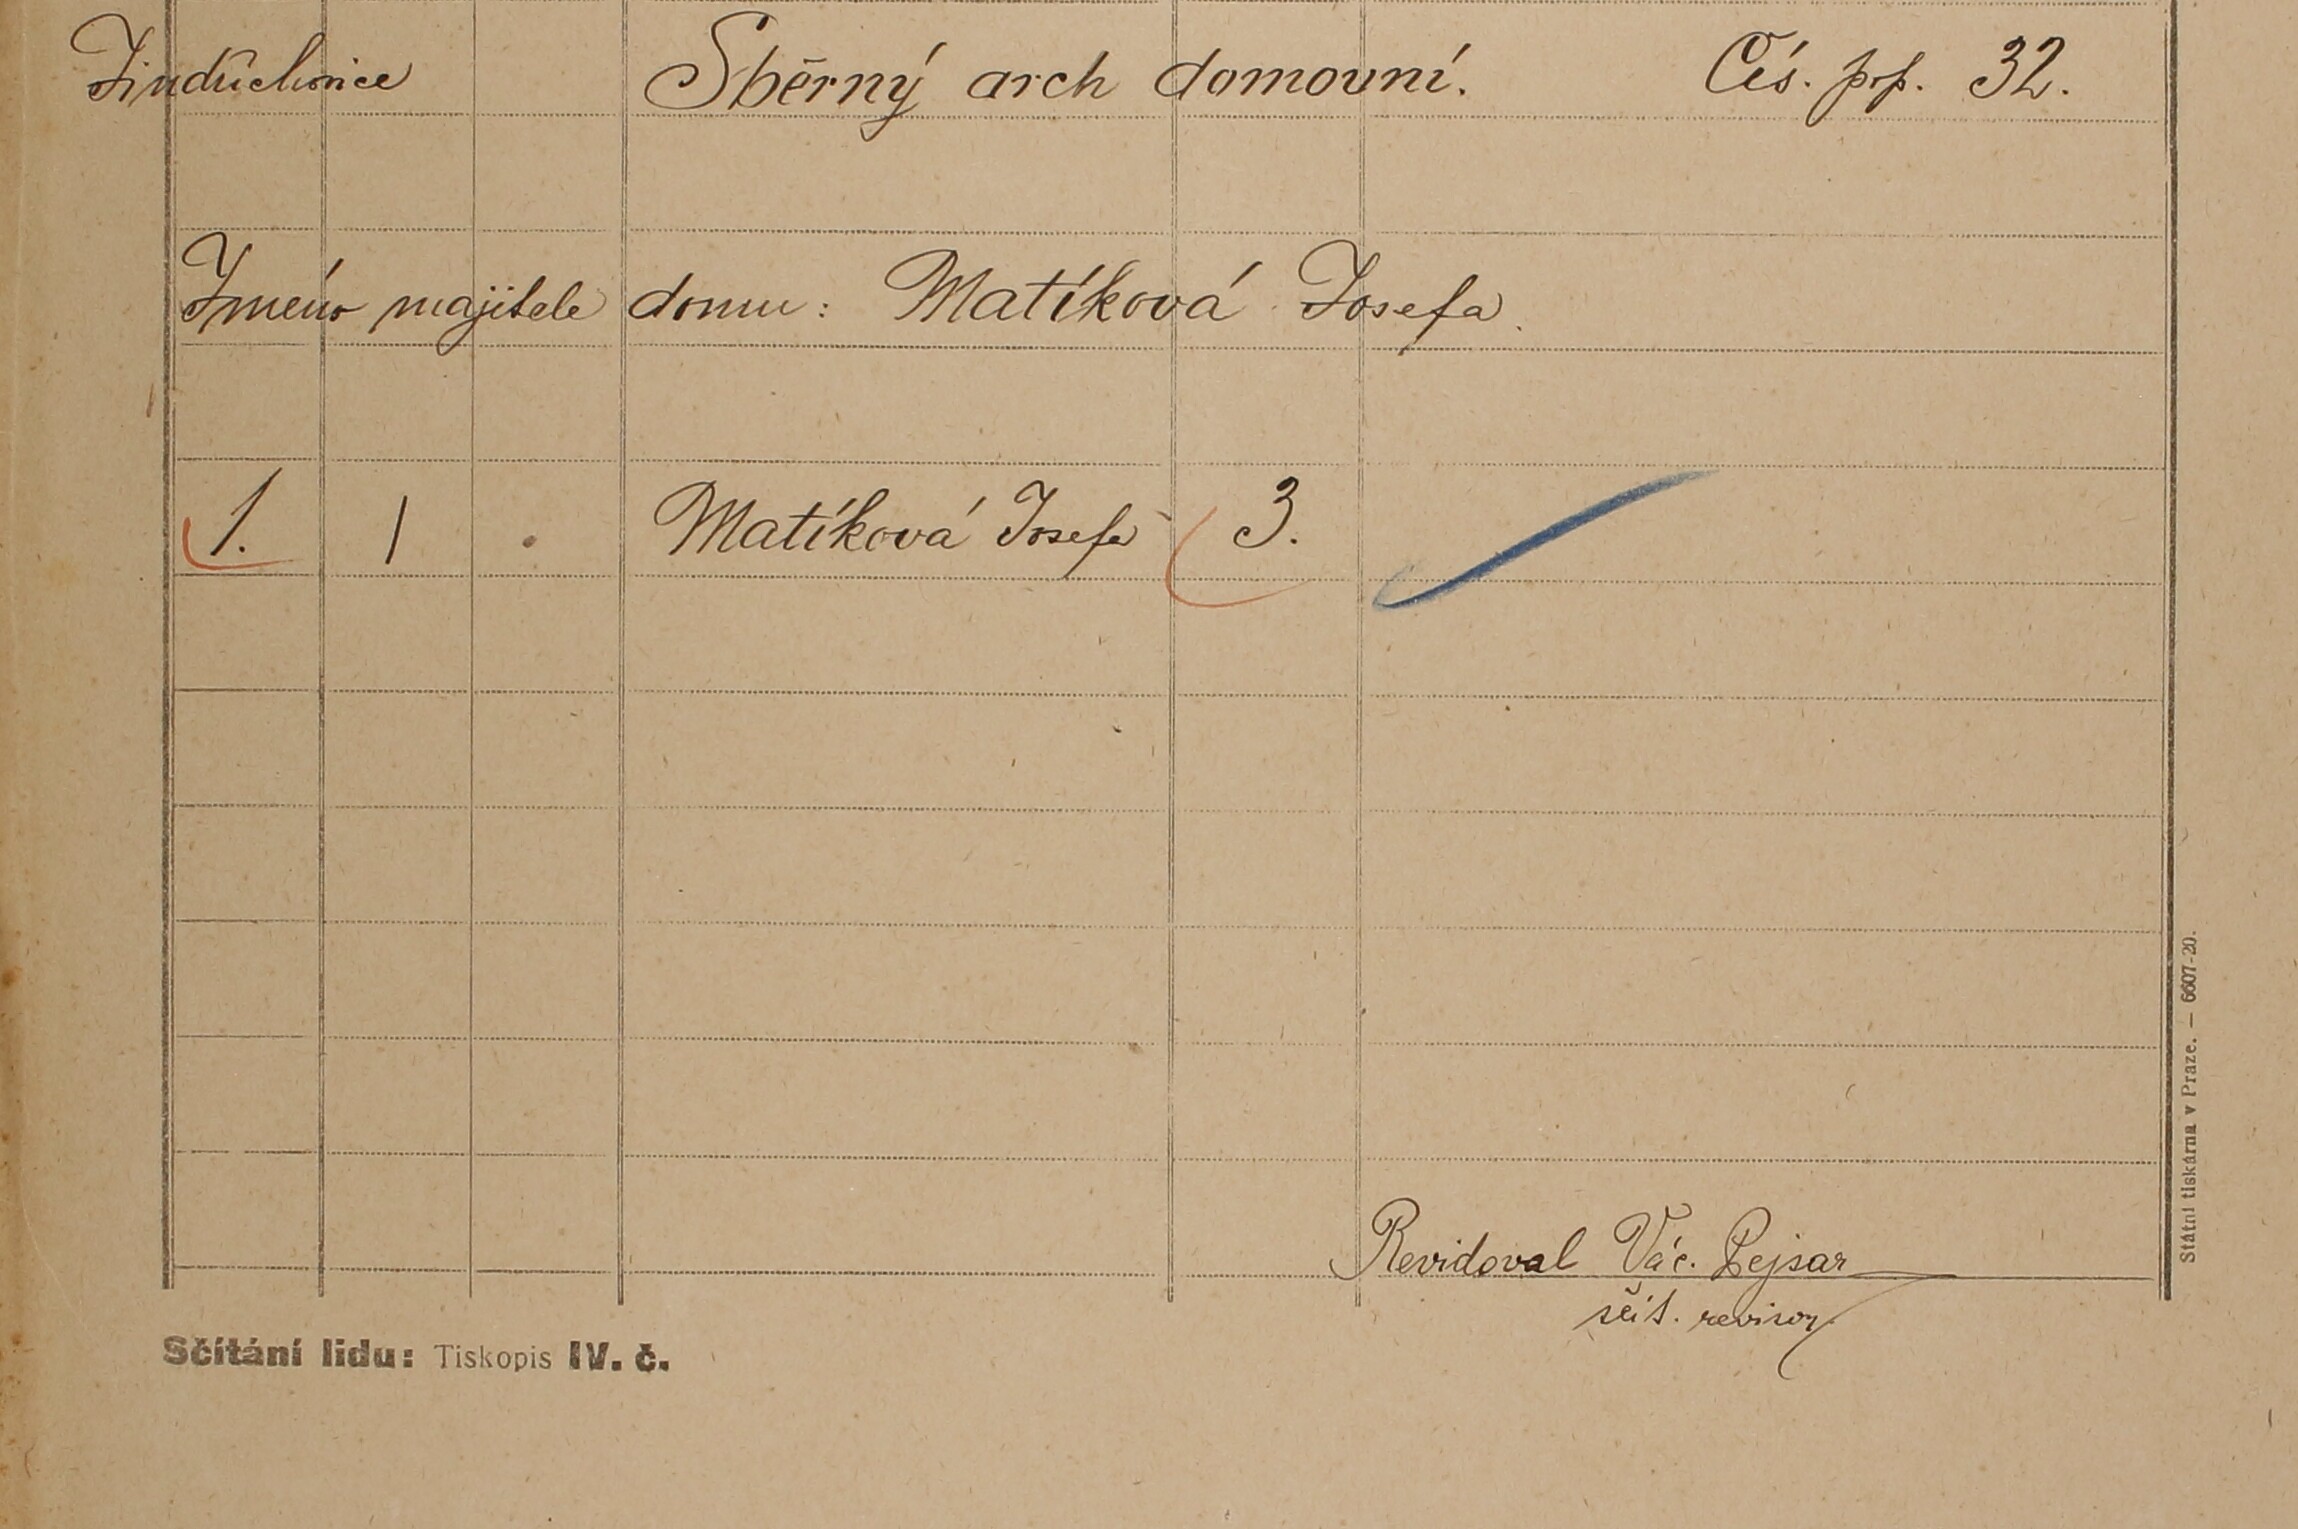 Jindůchovice Sběrný arch domovní. Čís. pop. 32.
Jméno majitele domu: Matíková Josefa.
1. 1 . Matíková Josefa 3.
Revidoval Vác. Pejsar
sčít. revisor
Sčítání lidu: Tiskopis IV. č.
Státní tiskárna v Praze. — 6607-20.